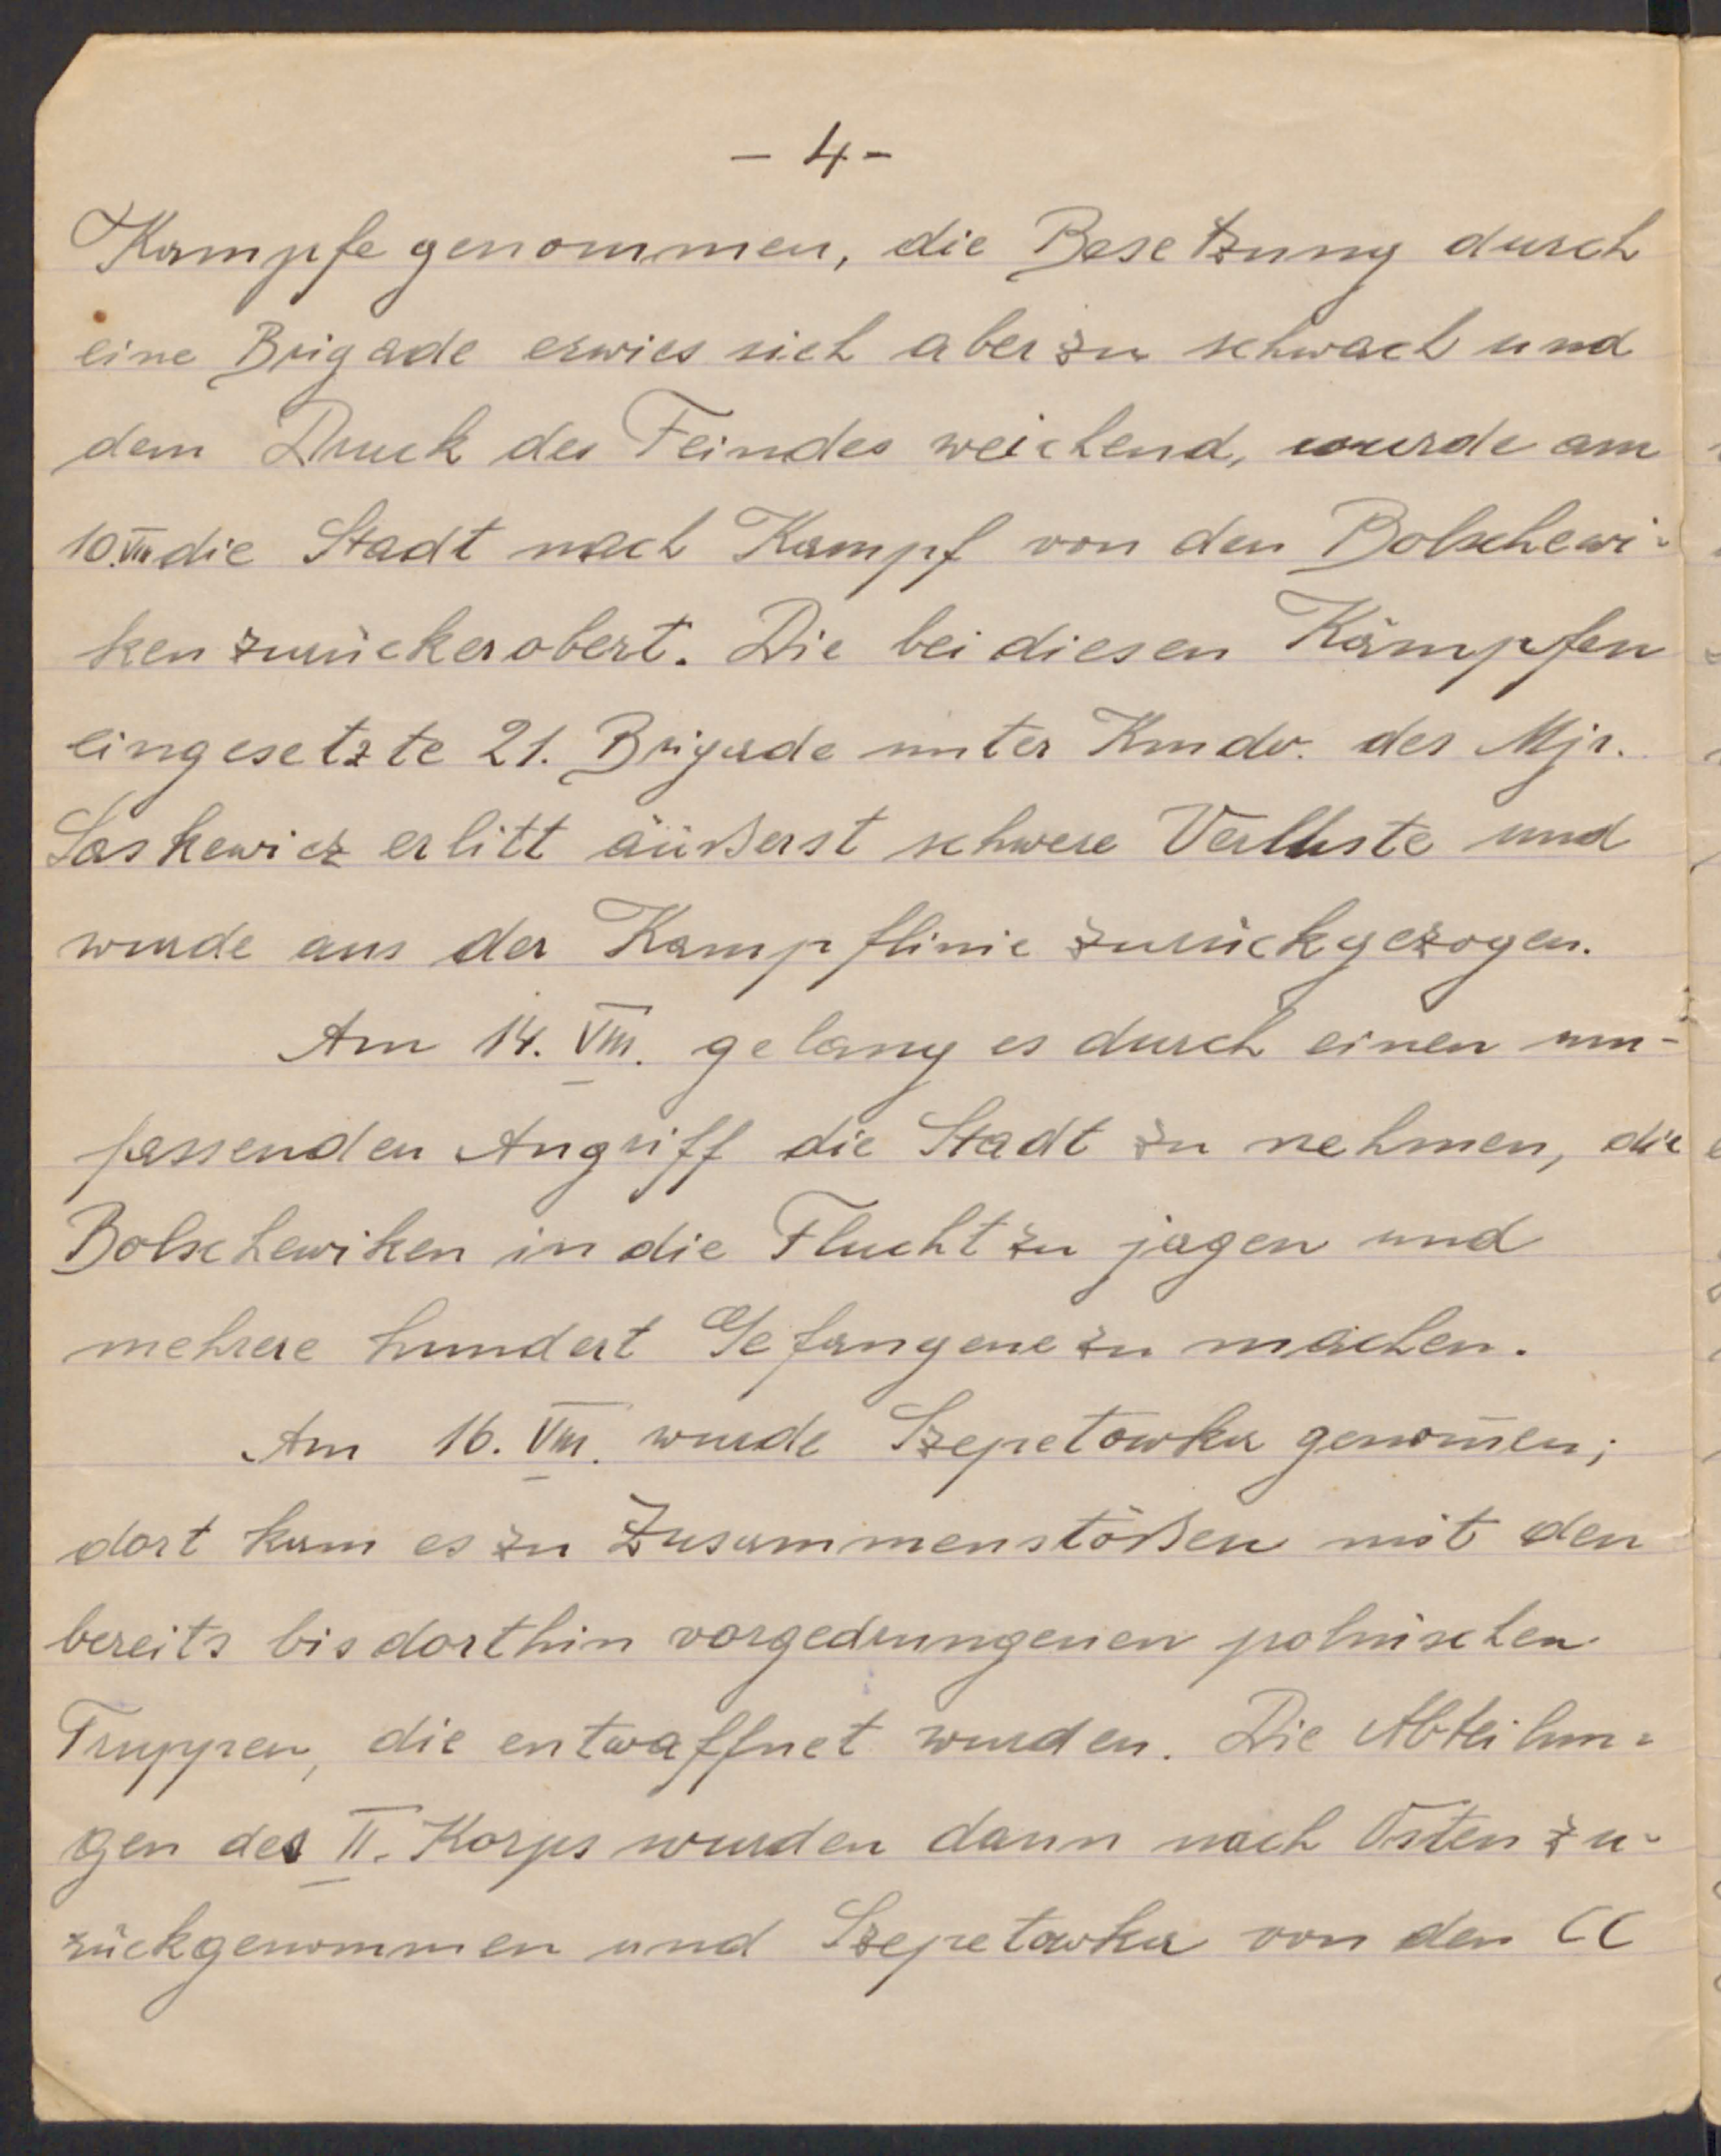 - 4 -
Kampfe genommen, die Besetzung durch
eine Brigade erwies sich aber zu schwach und
dem Druck des Feindes weichend, wurde am
10.VIII die Stadt nach Kampf von den Bolschewi-
ken zurückerobert. Die bei diesen Kämpfen
eingesetzte 21. Brigade unter Kmdo. des Mjr.
Laskewicz erlitt äußerst schwere Verluste und
wurde aus der Kampflinie zurückgezogen.
Am 14. VIII. gelang es durch einen um-
fassenden Angriff die Stadt zu nehmen, die
Bolschewiken in die Flucht zu jagen und
mehrere hundert Gefangene zu machen.
Am 16. VIII. wurde Szepetowka genom̄en;
dort kam es zu Zusammenstößen mit den
bereits bis dorthin vorgedrungenen polnischen
Truppen, die entwaffnet wurden. Die Abteilun-
gen des II. Korps wurden dann nach Osten zu-
rückgenommen und Szepetowka von den CC